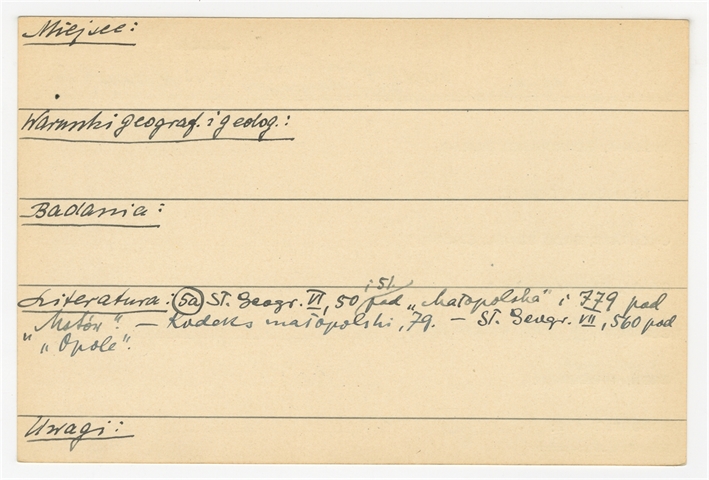 Miejsce:
Warunki geograf. i geolog.:
Badania:
i 51
Literatura: 5a Sł. Geogr. VI, 50 pod „Małopolska" i 779 pod
"Mstów". – Kodeks małopolski, 79. – Sł. Geogr. VII, 560 pod
„Opole".
Uwagi: